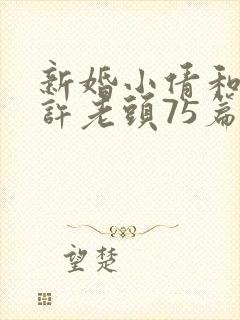 新婚小倩和
許老頭75篇
望楚